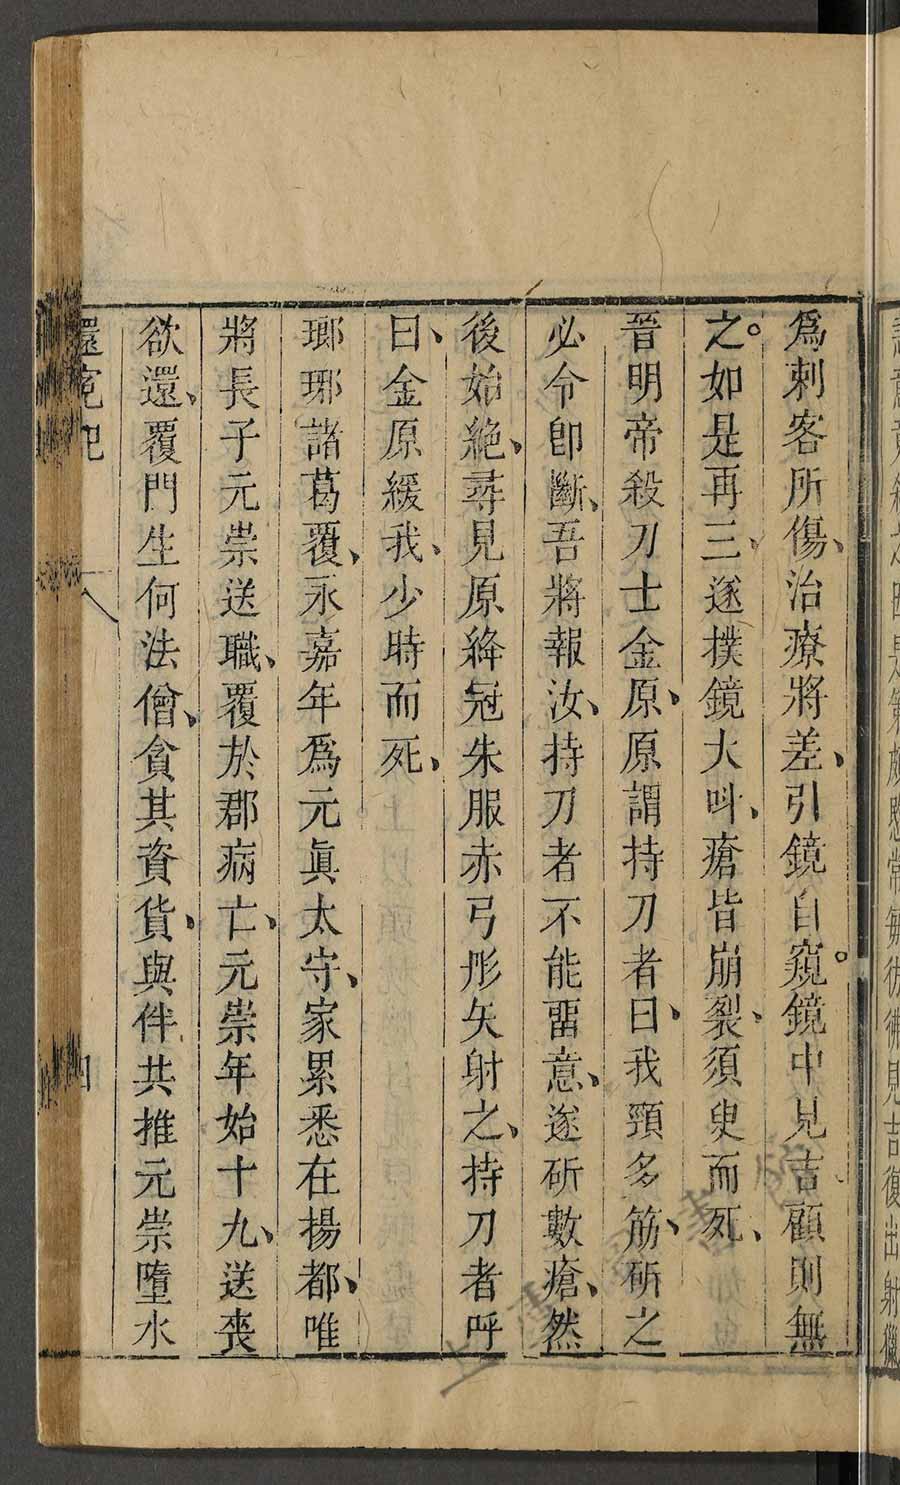 爲刺客所傷、治療將差、引鏡自窺。鏡中見吉顧則無
之。如是再三、遂撲鏡大叫、瘡皆崩裂、須臾而死、
晉明帝殺刀士金原、原謂持刀者曰、我頸多筋、斫之
必令卽斷、吾將報汝、持刀者不能畱意、遂斫數瘡、然
後始絕、尋見原絳冠朱服赤弓彤矢射之、持刀者呼
曰、金原緩我、少時而死、
瑯琊諸葛覆、永嘉年爲元眞太守、家累悉在揚都、唯
將長子元崇送職、覆於郡病亡、元崇年始十九、送喪
欲還、覆門生何法僧、貪其資貨、與伴共推元崇墮水
還冤記 八 四